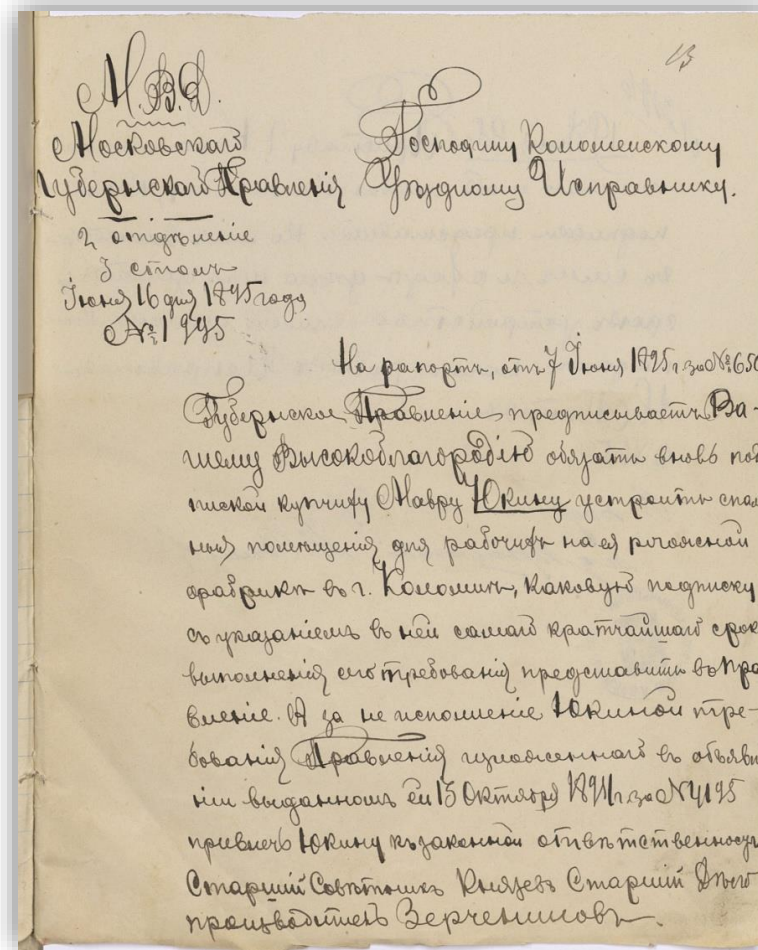 13
М. В. Д.
Московскаго
Губернскаго Правленія
2 отдѣленіе
3 столъ
Іюня 16 дня 1895 года
№ 1995
Господину Коломенскому
Уѣздному Исправнику.
На рапортъ, отъ 7 Іюня 1895 г. за № 650
Губернское Правленіе предписываетъ Ва-
шему Высокоблагородію обязать вновь под
пиской купчиху Мавру Юкину устроить спаль
ныя помѣщенія для рабочихъ на ея рогожной
фабрикѣ въ г. Коломнѣ, каковую подписку
съ указаніемъ въ ней самаго кратчайшаго срок
выполненія сего требованія представить въ Пра
вленіе. А за не исполненіе Юкиной тре-
бованія Правленія изложеннаго въ объявле
ніи выданномъ ей 15 Октября 1894 г. за № 4195
привлечь Юкину къ законной отвѣтственности
Старшій Совѣтникъ Князевъ Старшій Дѣло
производитель